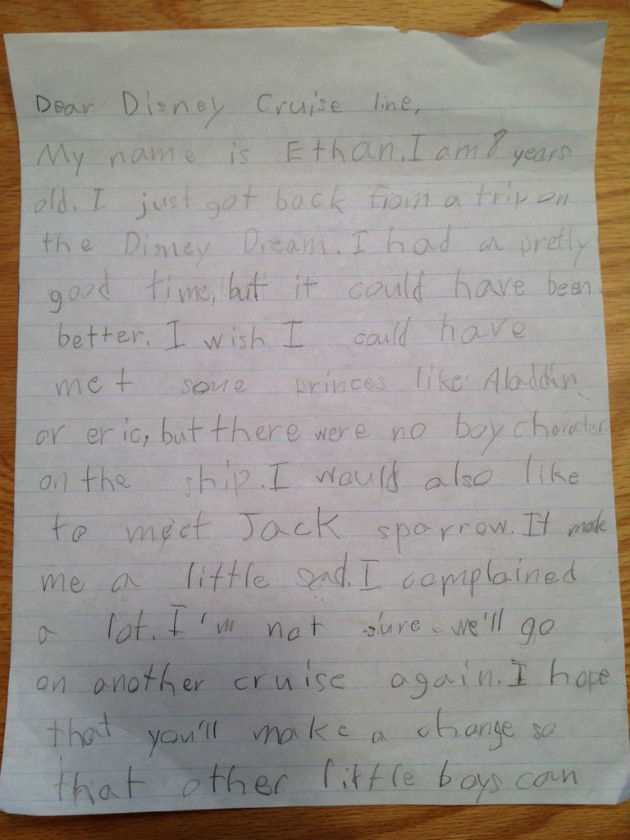 Dear Disney Cruise line,
My name is Ethan. I am 8 years
old. I just got back from a trip on
the Disney Dream. I had a pretty
good time, but it could have been
better. I wish I could have
met some princes like Aladdin
or eric, but there were no boy charater
on the ship. I would also like
to meet Jack sparrow. It made
me a little sad. I complained
a lot. I'm not sure we'll go
on another cruise again. I hope
that you'll make a change so
that other little boys can